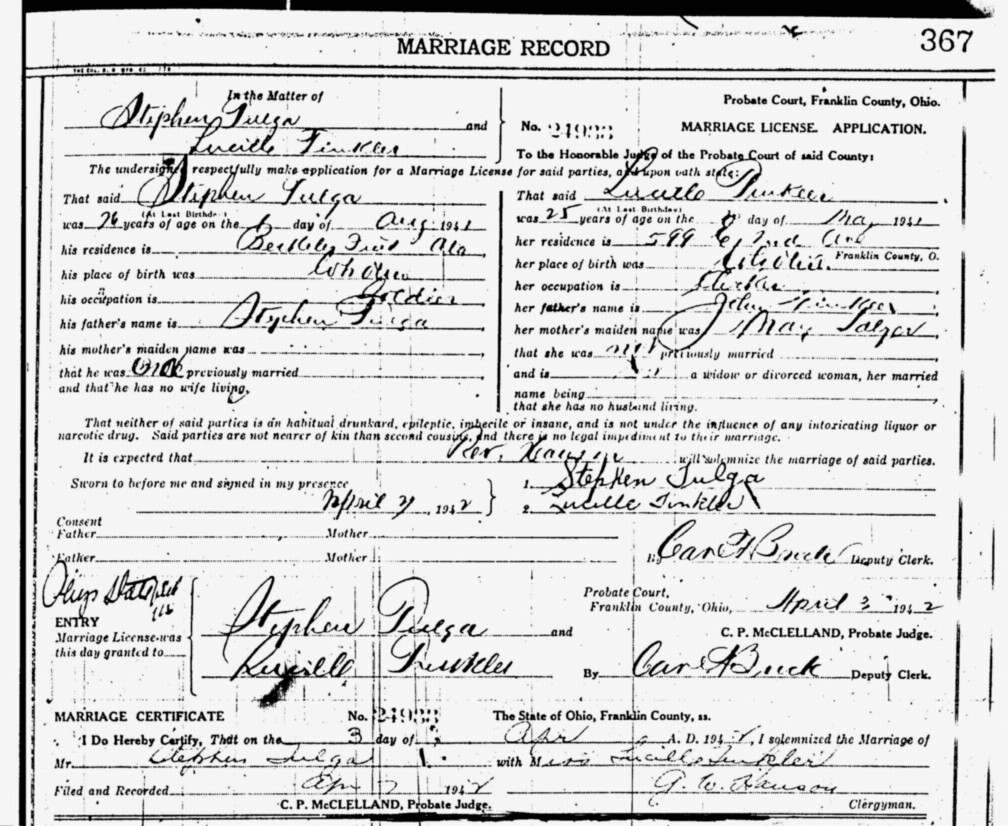 367
MARRIAGE RECORD
In the Matter of
Stephen Tulga and
Lucille Tinkler
Probate Court, Franklin County, Ohio.
No. 24933 MARRIAGE LICENSE APPLICATION.
To the Honorable Judge of the Probate Court of said County:
The undersigned respectfully make application for a Marriage License for said parties, and upon oath state:
That said Stephen Tulga
(At Last Birthday)
was 26 years of age on the 6 day of Aug 1941
his residence is Field Ala
his place of birth was
his occupation is Soldier
his father's name is Stephen Tulga
his mother's maiden name was
that he was not previously married
and that he has no wife living,
That said Lucille Tinkler
(At Last Birthday)
was 25 years of age on the day of May 1941
her residence is 599 E 2nd Ave
Franklin County, O.
her place of birth was
her occupation is
her father's name is John Tinkler
her mother's maiden name was May
that she was not previously married
and is a widow or divorced woman, her married
name being
that she has no husband living.
That neither of said parties is an habitual drunkard, epileptic, imbecile or insane, and is not under the influence of any intoxicating liquor or
narcotic drug. Said parties are not nearer of kin than second cousins, and there is no legal impediment to their marriage.
It is expected that Rev. Hanson will solemnize the marriage of said parties.
Sworn to before me and signed in my presence
April 2, 1942
1. Stephen Tulga
2. Lucille Tinkler
Consent
Father Mother
Father Mother
By Carl H Buck Deputy Clerk.
ENTRY
Marriage License was
this day granted to
Stephen Tulga and
Lucille Tinkler
Probate Court,
Franklin County, Ohio, April 3 1942
C. P. McCLELLAND, Probate Judge.
By Carl H Buck Deputy Clerk.
MARRIAGE CERTIFICATE No. 24933 The State of Ohio, Franklin County, ss.
I Do Hereby Certify, That on the 3 day of Apr A. D. 1942, I solemnized the Marriage of
Mr. Stephen Tulga with Miss Lucille Tinkler
Filed and Recorded Apr 7 1942 G. W. Hanson
C. P. McCLELLAND, Probate Judge. Clergyman.